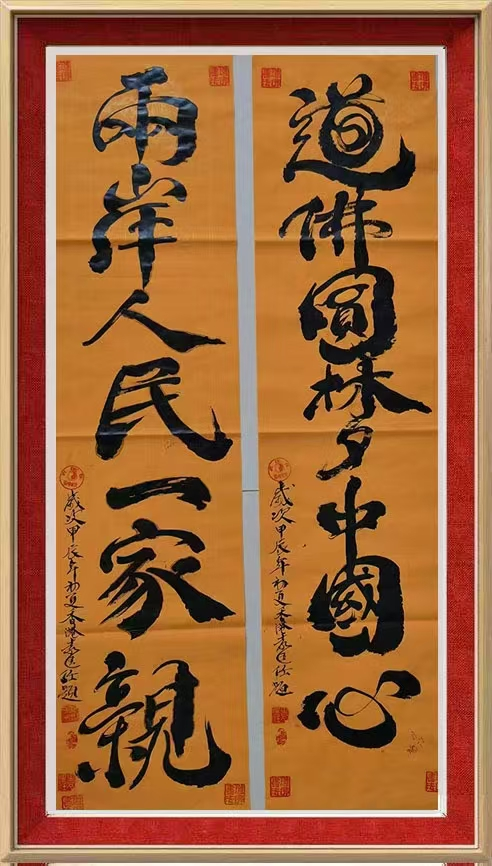 道佛圓梦中國心
歲次甲辰年初夏香港
兩岸人民一家親
歲次甲辰年初夏香港